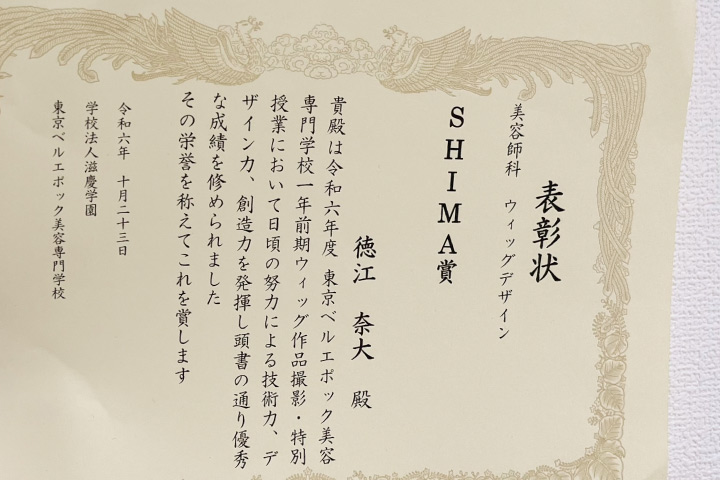 表彰状
美容師科 ウィッグデザイン
SHIMA賞
徳江 奈大 殿
貴殿は令和六年度 東京ベルエポック美容
専門学校一年前期ウィッグ作品撮影・特別
授業において日頃の努力による技術力、デ
ザイン力、創造力を発揮し頭書の通り優秀
な成績を修められました
その栄誉を称えてこれを賞します
令和六年 十月二十三日
学校法人滋慶学園
東京ベルエポック美容専門学校